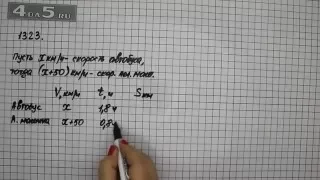 4DA5.RU
1323.
Пусть x км/ч - скорость автобуса,
тогда (x+50) км/ч - скор. маш.
V, км/ч t, ч S, км
Автобус x 1,8 ч
А. машина x+50 0,8